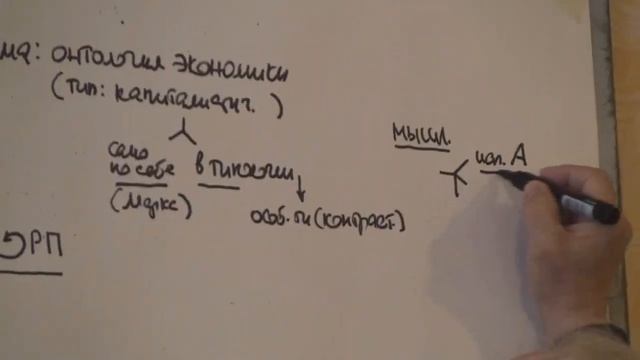 ма: онтология экономики
(тип: капиталистич.)
само по себе
в типологии
(Маркс)
особ-ти (контраст.)
ЭРП
мышл.
исп. А